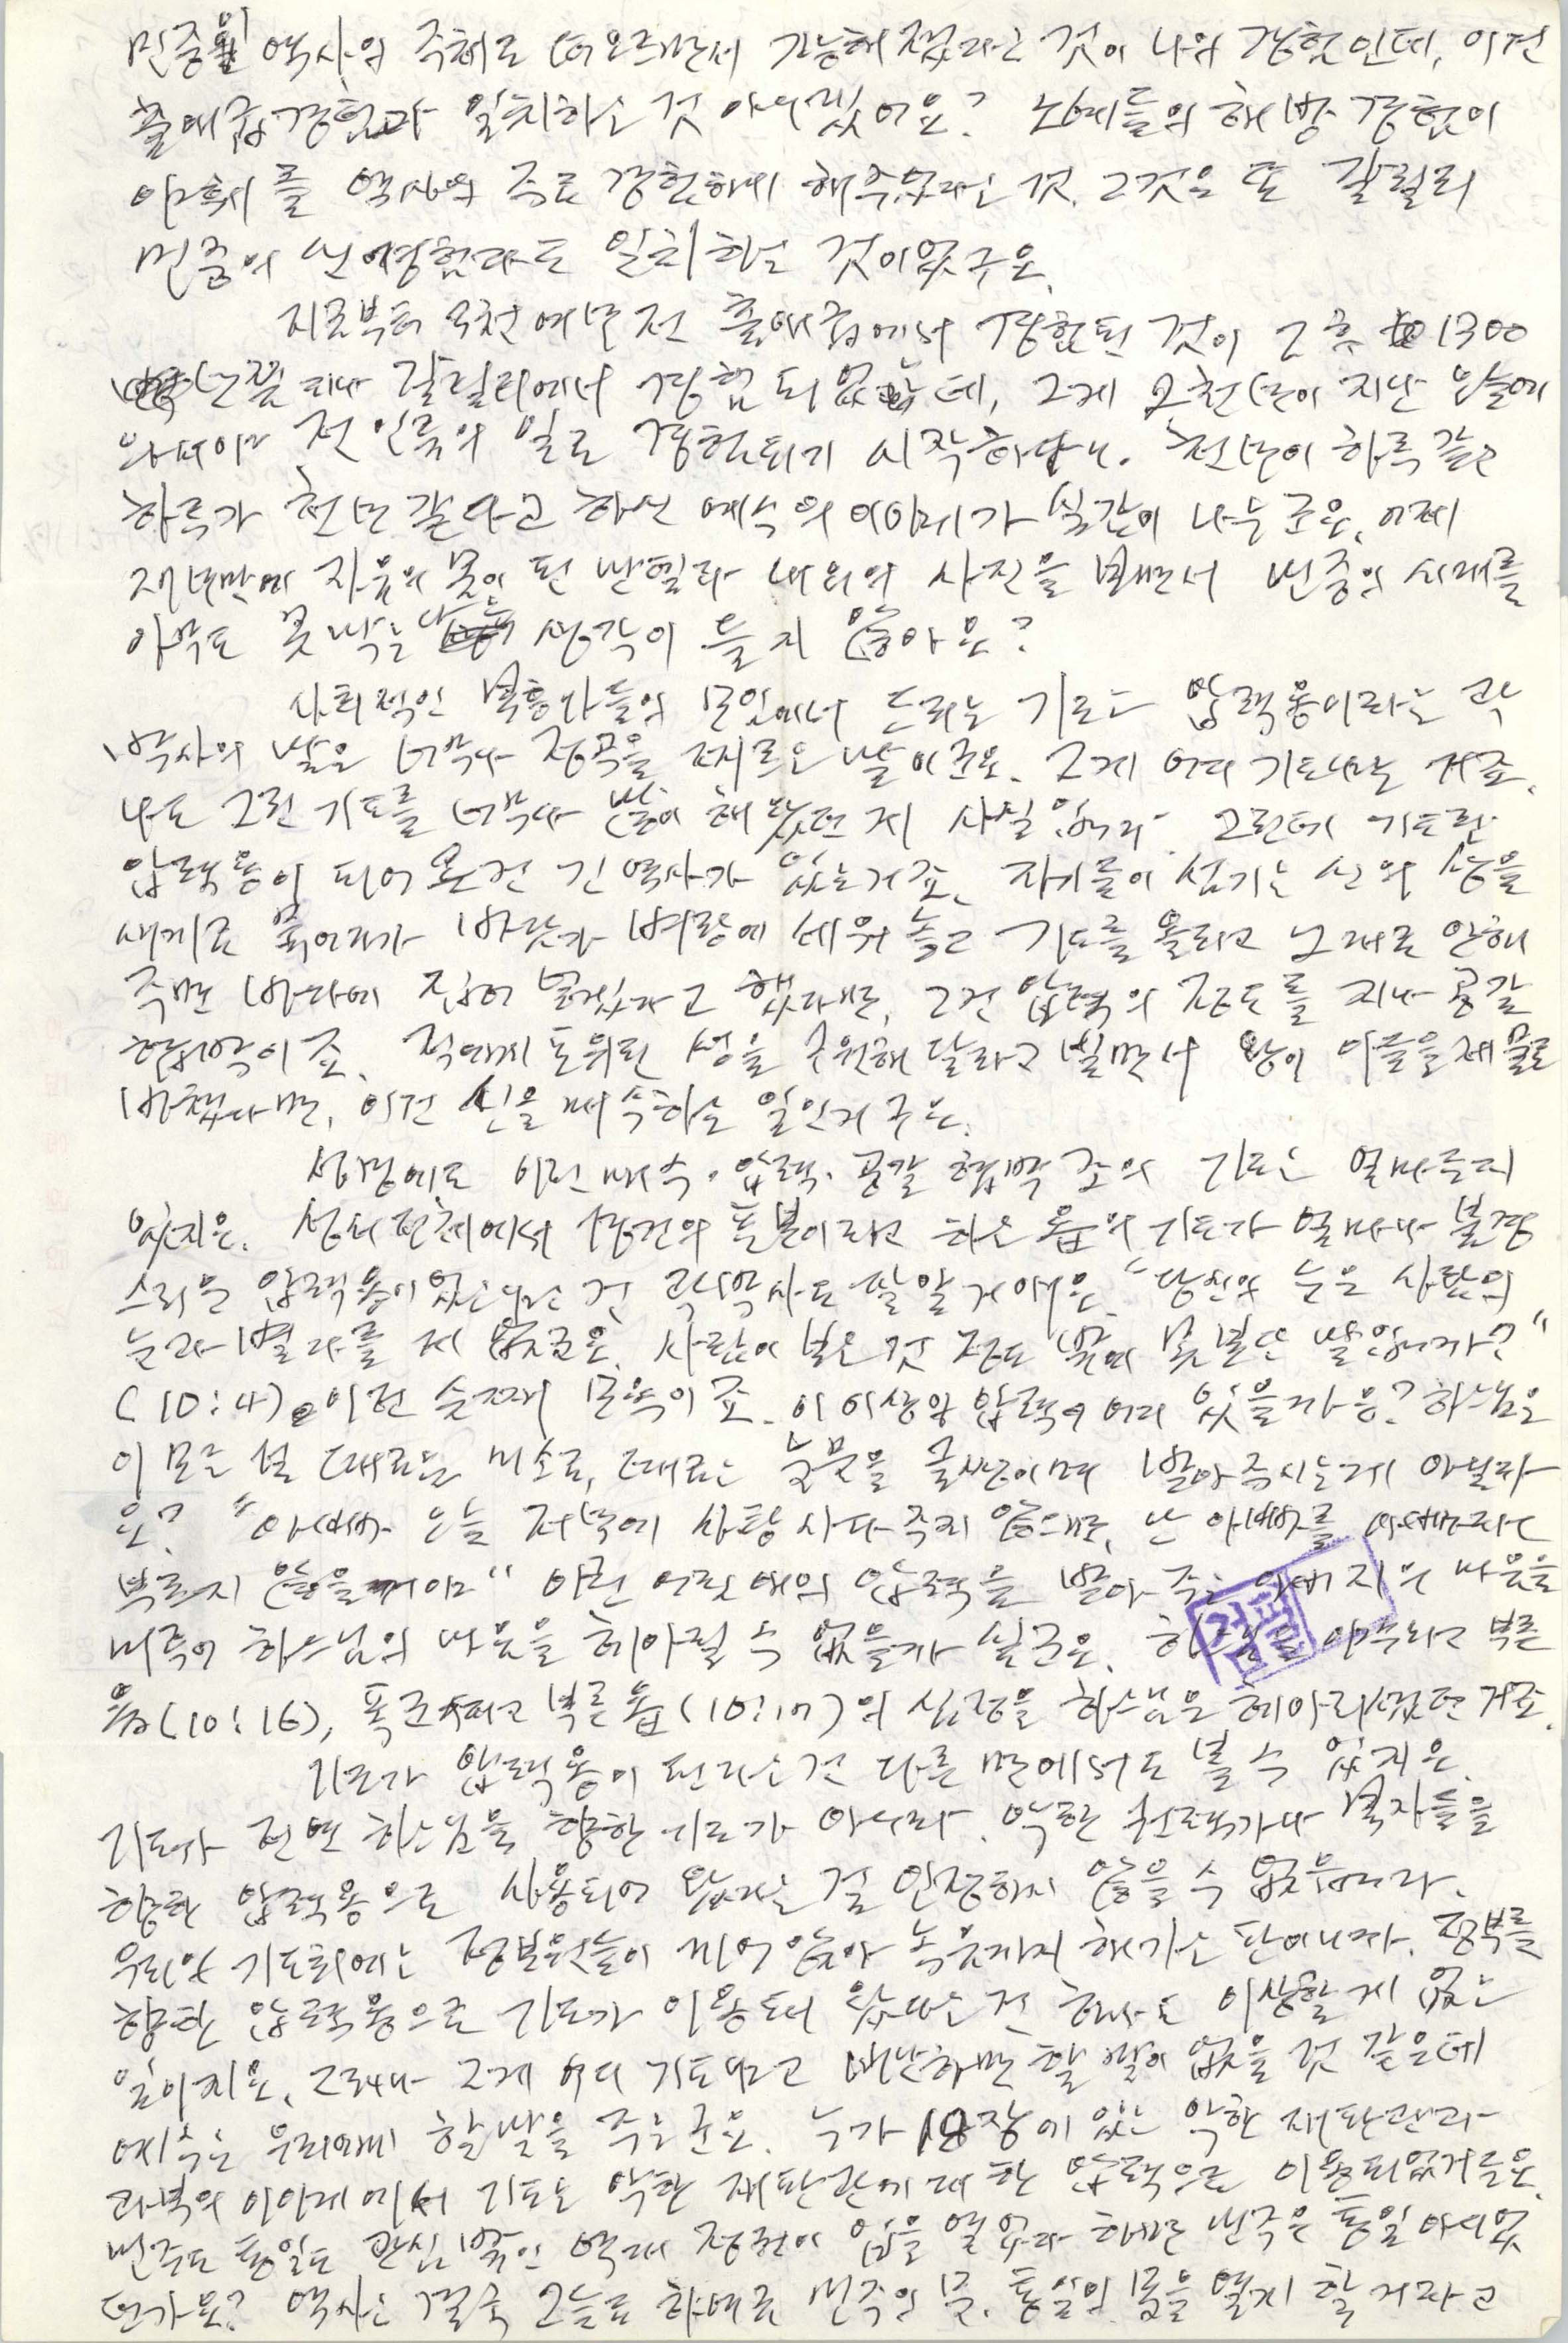 민중이 역사의 주체로 떠오르면서 가능해졌다는 것이 나의 경험인데, 이건
출애굽 경험과 일치하는 것 아니겠어요? 노예들의 해방 경험이
야훼를 역사의 주로 경험하게 해주었다는 것, 그것은 또 갈릴리
민중의 신 경험과도 일치하는 것이었구요.
지금부터 3천여년 전 출애굽에서 경험된 것이 그 후 1300
년쯤 지나 갈릴리에서 경험되었는데, 그게 2천년이 지난 오늘에
와서야 전 인류의 일로 경험되기 시작하다니. 천년이 하루 같고
하루가 천년 같다고 하신 예수의 이야기가 실감이 나는군요. 어제
27년만에 자유의 몸이 된 만델라 내외의 사진을 보면서 민중의 시대를
아무도 못 막는다는 생각이 들지 않아요?
사회적인 부흥사들의 모임에서 드리는 기도는 압력용이라는 곽
목사의 말은 너무나 정곡을 찌르는 말이군요. 그게 어디 기도냐는 거죠.
나도 그런 기도를 너무나 많이 해 왔던 게 사실입니다. 그런데 기도란
압력용이 되어 온 건 긴 역사가 있는거죠. 자기들이 섬기는 신의 상을
새기고 풍어제가 바닷가 벼랑에 세워 놓고 기도를 올리고 그대로 안해
주면 바다에 집어 넣겠다고 했다면, 그건 압력의 정도를 지나 공갈
협박이죠. 적에게 포위된 성을 구원해 달라고 빌면서 왕이 아들을 제물로
바쳤다면, 이건 신을 매수하는 일인거구요.
성경에도 이런 매수·압력·공갈 협박 조의 기도는 얼마든지
있지요. 성서 전체에서 경건의 표본이라고 하는 욥의 기도가 얼마나 불경
스러운 압력용이었느냐는 건 곽목사도 잘 알 거예요. "당신의 눈은 사람의
눈과 별다를 게 없군요. 사람이 보는 것 정도 밖에 못 보신단 말입니까?"
(10:4). 이건 숫제 모욕이죠. 이 이상의 압력이 어디 있을까요? 하느님은
이 모든 걸 때로는 미소로, 때로는 눈물을 글썽이며 받아주시는게 아닐까
요? "아빠가 오늘 저녁에 사탕 사다 주지 않으면, 난 아빠를 아빠라고
부르지 않을 거야" 이런 어린 애의 압력을 받아 주는 아버지의 마음을
미루어 하느님의 마음을 헤아릴 수 없을까 싶군요. 하느님을 야수라고 부른
욥(10:16), 폭군이라고 부른 욥(10:17)의 심정을 하느님은 헤아리셨던 거죠.
기도가 압력용이 된다는 건 다른 면에서도 볼 수 있지요.
기도가 전연 하느님을 향한 기도가 아니라, 악한 권력가나 부자들을
향한 압력용으로 사용되어 왔다는 걸 인정하지 않을 수 없습니다.
우리의 기도회에는 정보원들이 끼어 앉아 녹음까지 해가는 판이니까. 정부를
향한 압력용으로 기도가 이용돼 왔다는 건 하나도 이상할 게 없는
일이지요. 그러나 그게 어디 기도냐고 비난하면 할 말이 없을 것 같은데
예수는 우리에게 할 말을 주는군요. 누가 18장에 있는 악한 재판관과
과부의 이야기에서 기도는 악한 재판관에 대한 압력으로 이용되었거든요.
민주도 통일도 관심 밖인 역대 정권이 입을 열었다 하면 민주요 통일 아니었
던가요? 역사는 결국 그들로 하여금 민주의 문, 통일의 문을 열게 할 거라고
검필